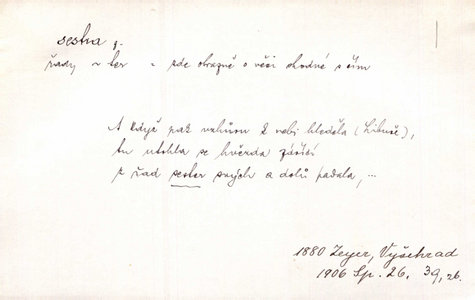 sestra ž.
řady ~ ter - zde obrazně o věci shodné s čím
A když pak vzhůru k nebi hleděla (Libuše),
tu utrhla se hvězda zářící
z řad sester svých a dolů padala, ...
1880 Zeyer, Vyšehrad
1906 Sp. 26, 39, 26.